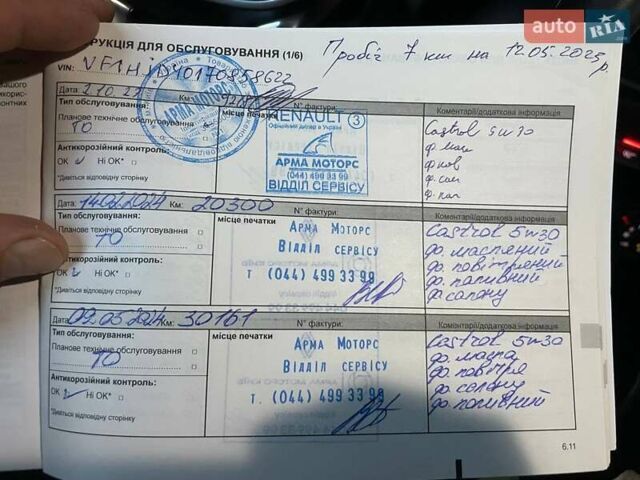 auto RIA.com
РУКЦІЯ ДЛЯ ОБСЛУГОВУВАННЯ (1/6)
Пробіг 7 км на 12.05.2025 р.
VIN: VF1HJD40170858622
Дата:
Км:
№ фактури:
Коментарі/додаткова інформація
Тип обслуговування:
Планове технічне обслуговування
ТО
місце печатки
RENAULT 3
Офіційний дилер в Україні
АРМА МОТОРС
(044) 499 33 99
ВІДДІЛ СЕРВІСУ
АРМА МОТОРС
Castrol 5w30
ф. мас
ф. пов
ф. сал
ф. пал
Антикорозійний контроль:
ОК ✓ Ні ОК*
*Дивіться відповідну сторінку
Дата: 14.02.2024 Км: 20300
№ фактури:
Коментарі/додаткова інформація
Тип обслуговування:
Планове технічне обслуговування
ТО
місце печатки
Арма Моторс
Відділ сервісу
т (044) 499 33 99
Castrol 5w30
ф. масляний
ф. повітряний
ф. паливний
ф. салону
Антикорозійний контроль:
ОК Ні ОК*
*Дивіться відповідну сторінку
Дата: 09.05.2024 Км: 30161
№ фактури:
Коментарі/додаткова інформація
Тип обслуговування:
Планове технічне обслуговування
ТО
місце печатки
Арма Моторс
Відділ сервісу
т. (044) 499 33 99
Castrol 5w30
ф. масла
ф. повітря
ф. салону
ф. паливний
Антикорозійний контроль:
ОК ✓ Ні ОК*
*Дивіться відповідну сторінку
6.11